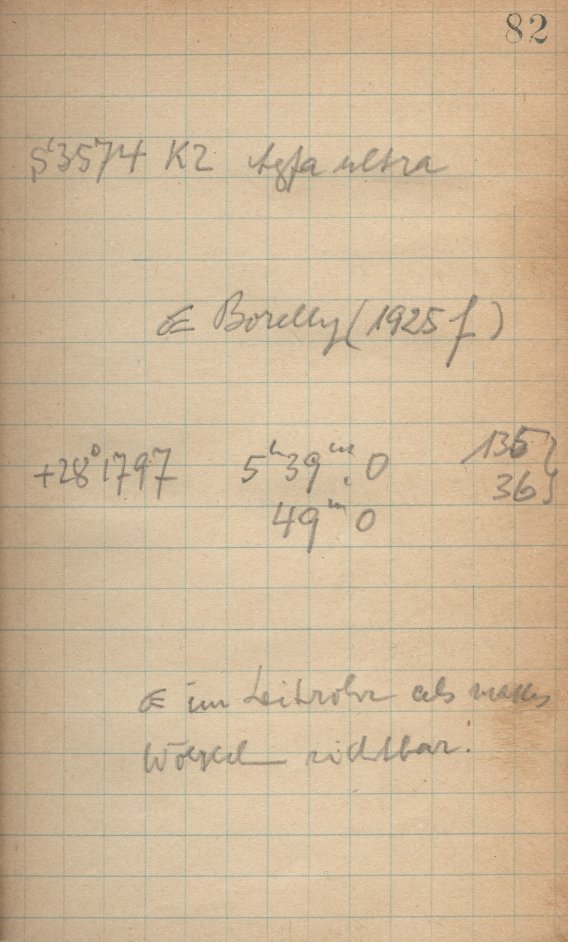 82
S3574 K2 Agfa ultra
☄ Borelly (1925 f)
+28°1797 5ʰ39ᵐ.0 135}
49ᵐ0 36}
☄ im Leitrohr als mattes
Wölkch sichtbar.